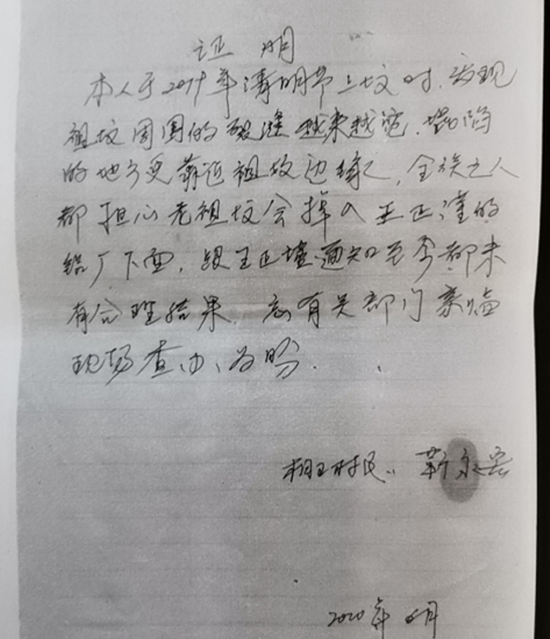 证明
本人于2019年清明节上坟时,发现
祖坟周围的裂缝越来越宽,塌陷
的地方更靠近祖坟边缘,全族之人
都担心老祖坟会掉入王正潼的
厂下面,跟王正潼通知至今都未
有合理结果,忘有关部门亲临
现场查办、为盼.
村民:靳
2020年6月